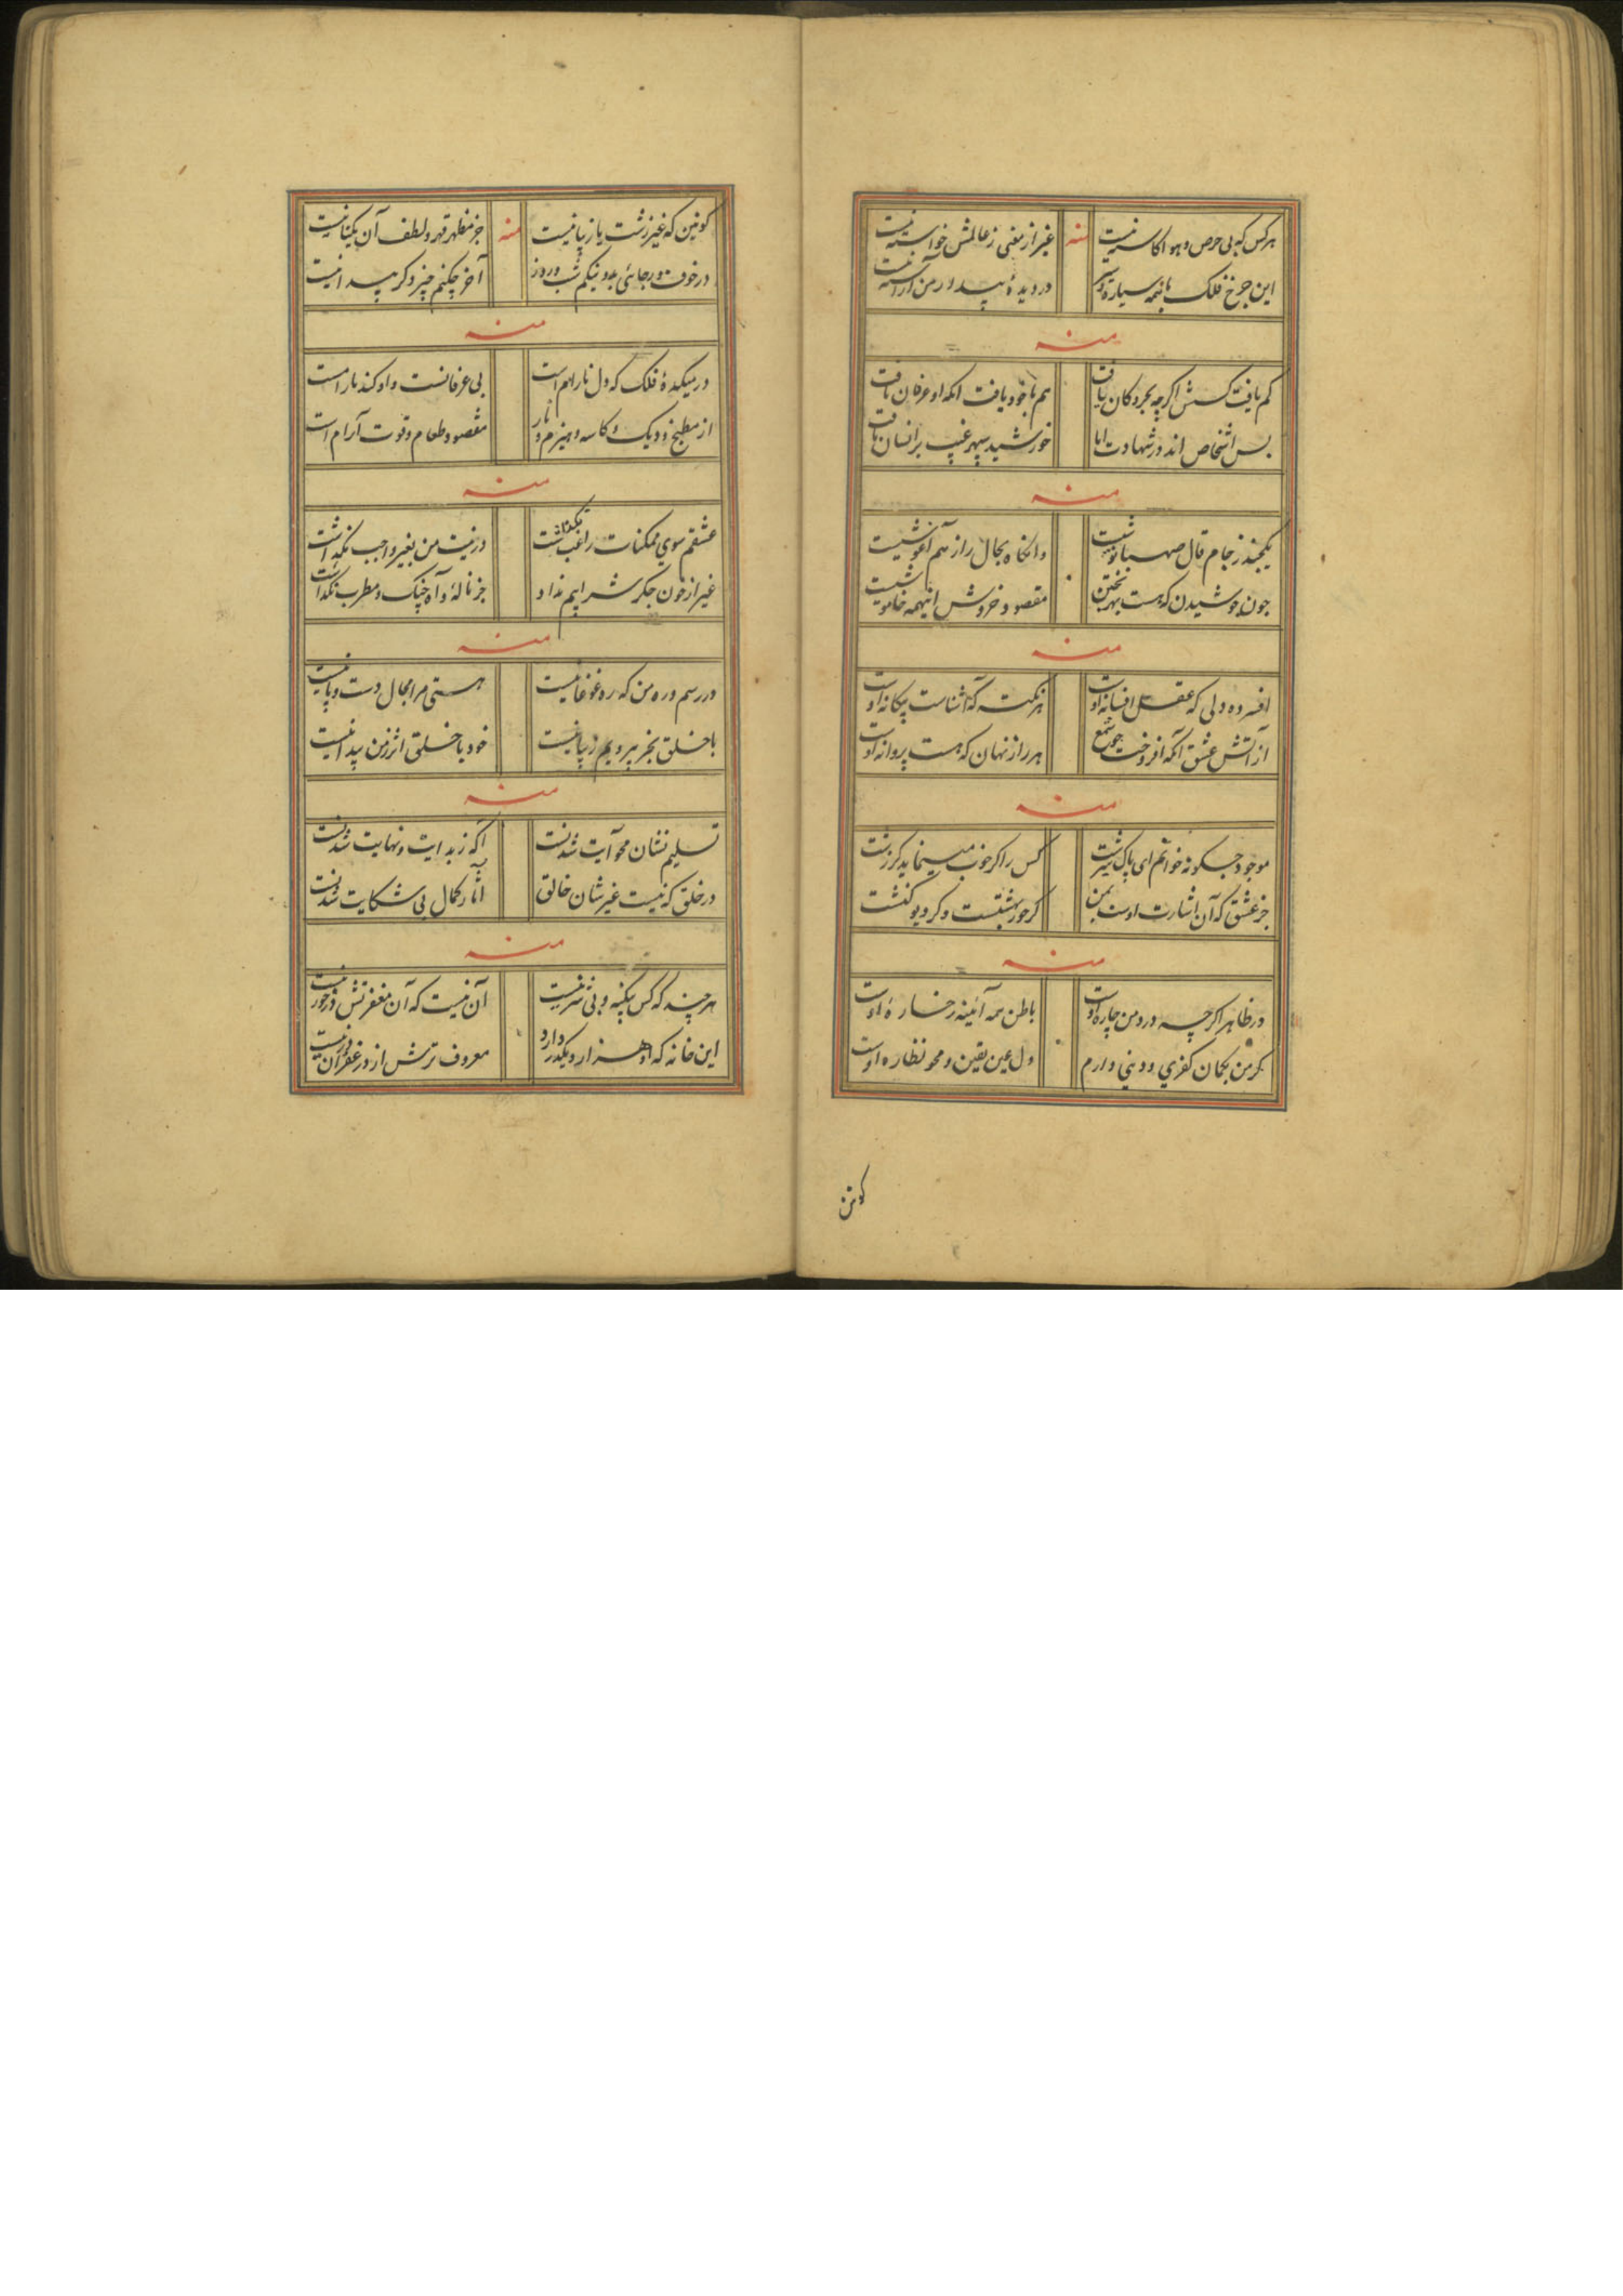 هرکس که بی حرص و هوا کاسته نیست منه غیر از معنی ز عالمش خواسته نیست
این چرخ فلک با همه سیاره و سیر در دیدهٔ بیدار من آراسته نیست
منه
کم یافت کسش اگرچه بحر و کان یافت هم با خود یافت انکه او عرفان یافت
بس اشخاص اند در شهادت اما خورشید سپهر غیب بر انسان تافت
منه
یکچند ز جام قال صهبا نوشیست وانگاه بحال راز هم آغوشیست
چون جوشیدن که هست بهر پختن مقصود خروش اینهمه خاموشیست
منه
افسرده دلی که عقل افسانه اوست هر نکته که آشناست بیگانه اوست
از آتش عشق آنکه افروخت چو شمع هر راز نهان که هست پروانه اوست
منه
موجود چگونه خوانم ای پاک سرشت کس را گر خوب مینماید گر زشت
جز عشق که آن اشارت اوست بمن گر حور بهشتست و گر دیو کنشت
منه
در ظاهر اگرچه درد من چاره اوست باطن همه آئینه رخساره اوست
گر من بگمان کفری و دینی دارم دل عین یقین و محو نظاره اوست
کونین
کونین که غیر زشت یا زیبا نیست منه جز مظهر قهر و لطف آن یکتا نیست
در خوف و رجائی بد و نیکم شب و روز آخر چکنم چیز دگر پیدا نیست
منه
در میکدهٔ فلک که دل ناراهم است بی عرفانست واد کند بارامست
از مطبخ و دیک و کاسه و هیزم و نار مقصود طعام و قوت آرام است
منه
عشقم سوی ممکنات راغب نگذاشت در نیت من بغیر واجب نگذاشت
غیر از خون جگر شرابیم نداد جز ناله و آه چنگ و مطرب نگذاشت
منه
در رسم و ره من که ره غوغا نیست هستی مرا مجال دست و پا نیست
با خلق بجز پیرویم زیبا نیست خود با خلق اثر ز من پیدا نیست
منه
تسلیم نشان محو آیت شدنست آگه ز بدایت و نهایت شدنست
در خلق که نیست غیر شان خالق آثار کمال بی شکایت شدنست
منه
هرچند که کس بیگنه و بی شر نیست آن نیست که آن مغفرتش در خور نیست
این خانه که او هزار و یکدر دارد معروف ترش از در غفران در نیست